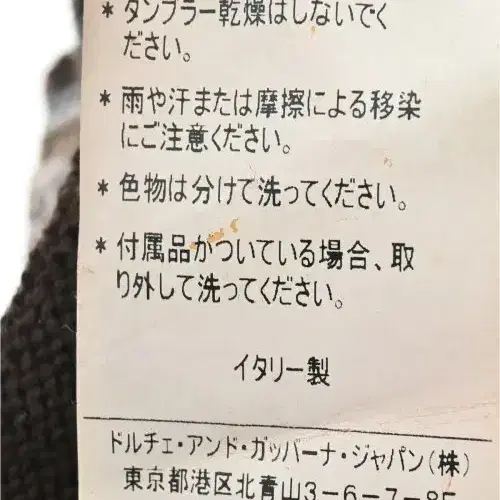 * タンブラー乾燥はしないでく
ださい。
* 雨や汗または摩擦による移染
にご注意ください。
* 色物は分けて洗ってください。
* 付属品がついている場合、取
り外して洗ってください。
イタリー製
ドルチェ・アンド・ガッバーナ・ジャパン(株)
東京都港区北青山3-6-7-8F